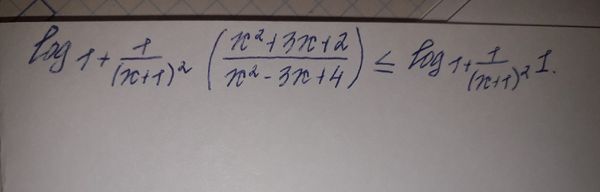 log 1+1/(x+1)² ((x²+3x+2)/(x²-3x+4)) ≤ log 1+1/(x+1)² 1.